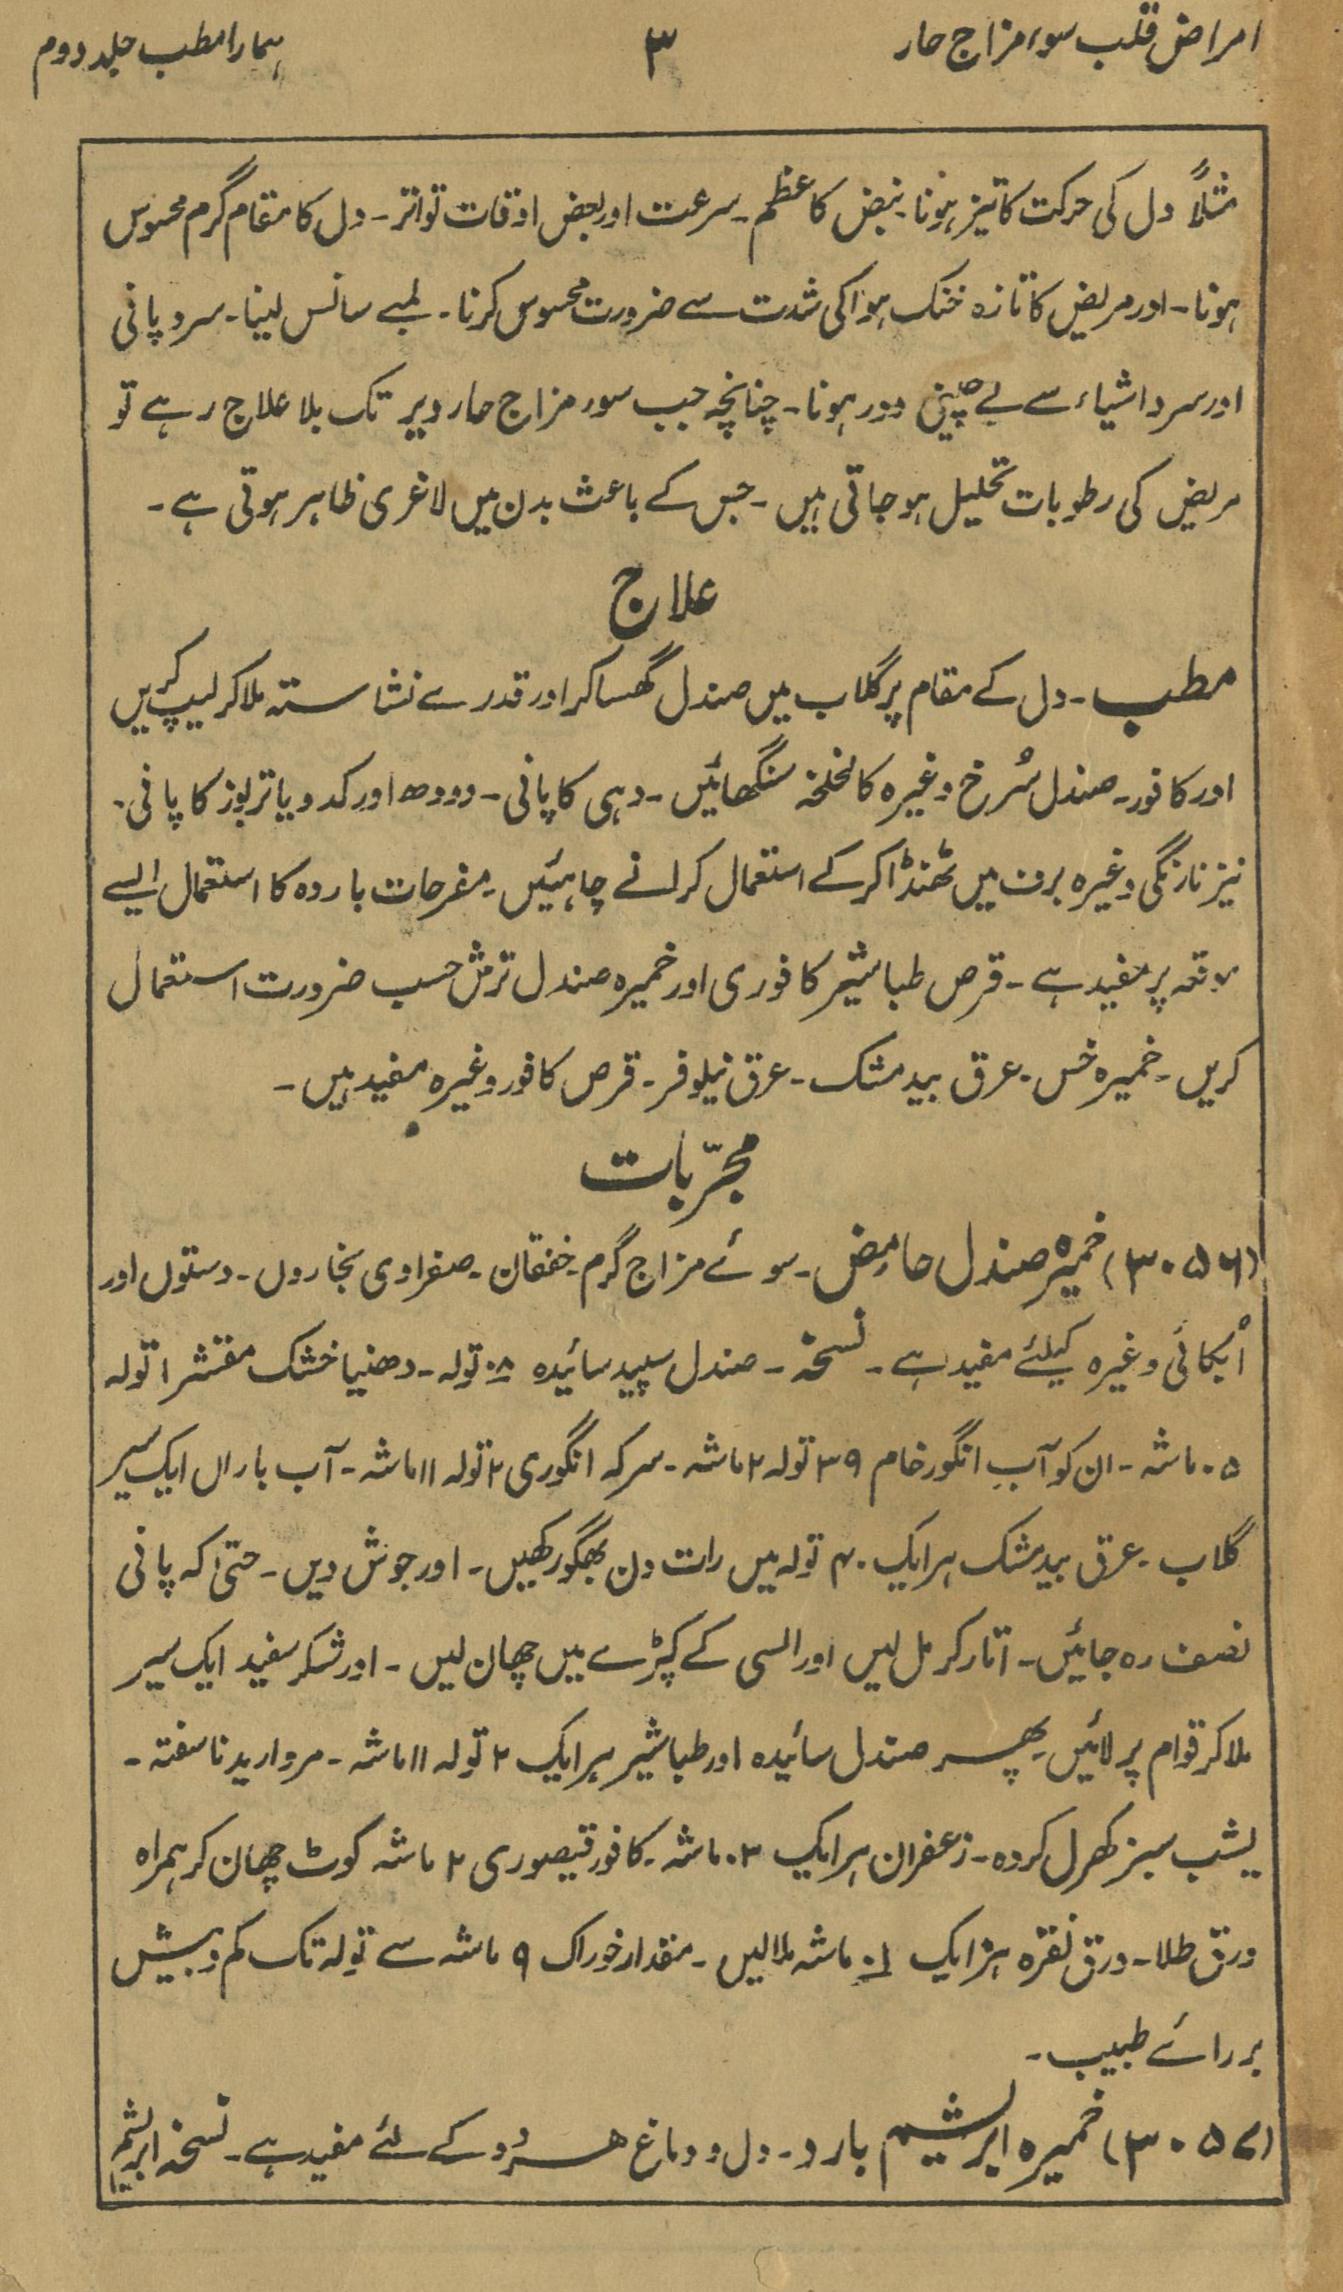 امراض قلب سوء مزاج حار ۳ ہمارا مطب جلد دوم
مثلاً دل کی حرکت کا تیز ہونا۔ نبض کا عظم۔ سرعت اور بعض اوقات تواتر۔ دل کا مقام گرم محسوس
ہونا۔ اور مریض کا تازہ خنک ہوا کی شدت سے ضرورت محسوس کرنا۔ لمبے سانس لینا۔ سرد پانی
اور سرد اشیاء سے بے چینی دور ہونا۔ چنانچہ جب سوء مزاج حار دیر تک بلا علاج رہے تو
مریض کی رطوبات تحلیل ہو جاتی ہیں۔ جس کے باعث بدن میں لاغری ظاہر ہوتی ہے۔
علاج
مطب۔ دل کے مقام پر گلاب میں صندل گھسا کر اور قدرے نشاستہ ملا کر لیپ کریں
اور کافور۔ صندل سُرخ وغیرہ کا لخلخہ سنگھائیں۔ دہی کا پانی۔ دودھ اور کدو یا تربوز کا پانی۔
نیز نارنگی وغیرہ برف میں ٹھنڈا کر کے استعمال کرانے چاہئیں۔ مفرحات باردہ کا استعمال ایسے
موقعہ پر مفید ہے۔ قرص طباشیر کافوری اور خمیرہ صندل ترش حسب ضرورت استعمال
کریں۔ خمیرہ خس۔ عرق بید مشک۔ عرق نیلوفر۔ قرص کافور وغیرہ مفید ہیں۔
مجرّبات
(۳۰۵۶) خمیرہ صندل حامض۔ سوئے مزاج گرم۔ خفقان۔ صفراوی بخاروں۔ دستوں اور
اُبکائی وغیرہ کیلئے مفید ہے۔ نسخہ۔ صندل سپید سائیدہ ۸ تولہ۔ دھنیا خشک مقشر ۱ تولہ
۵ ماشہ۔ ان کو آبِ انگور خام ۳۹ تولہ ۲ ماشہ۔ سرکہ انگوری ۲ تولہ ۱۱ ماشہ۔ آب باراں ایک سیر
گلاب۔ عرق بید مشک ہر ایک ۴۰ تولہ میں رات دن بھگو رکھیں۔ اور جوش دیں۔ حتیٰ کہ پانی
نصف رہ جائیں۔ اتار کر مل لیں اور السی کے کپڑے میں چھان لیں۔ اور شکر سفید ایک سیر
ملا کر قوام پر لائیں۔ پھر صندل سائیدہ اور طباشیر ہر ایک ۲ تولہ ۱۱ ماشہ۔ مروارید ناسفتہ۔
یشب سبز کھرل کردہ۔ زعفران ہر ایک ۳ ماشہ۔ کافور قیصوری ۲ ماشہ کوٹ چھان کر ہمراہ
ورق طلا۔ ورق نقرہ ہر ایک ماشہ ملا لیں۔ مقدار خوراک ۹ ماشہ سے تولہ تک کم و بیش
بر رائے طبیب۔
(۳۰۵۷) خمیرہ ابریشم بارد۔ دل و دماغ ہر دو کے لئے مفید ہے۔ نسخہ ابریشم